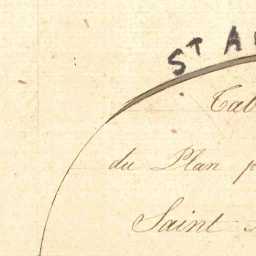 ST A
Tab
du Plan p
Saint